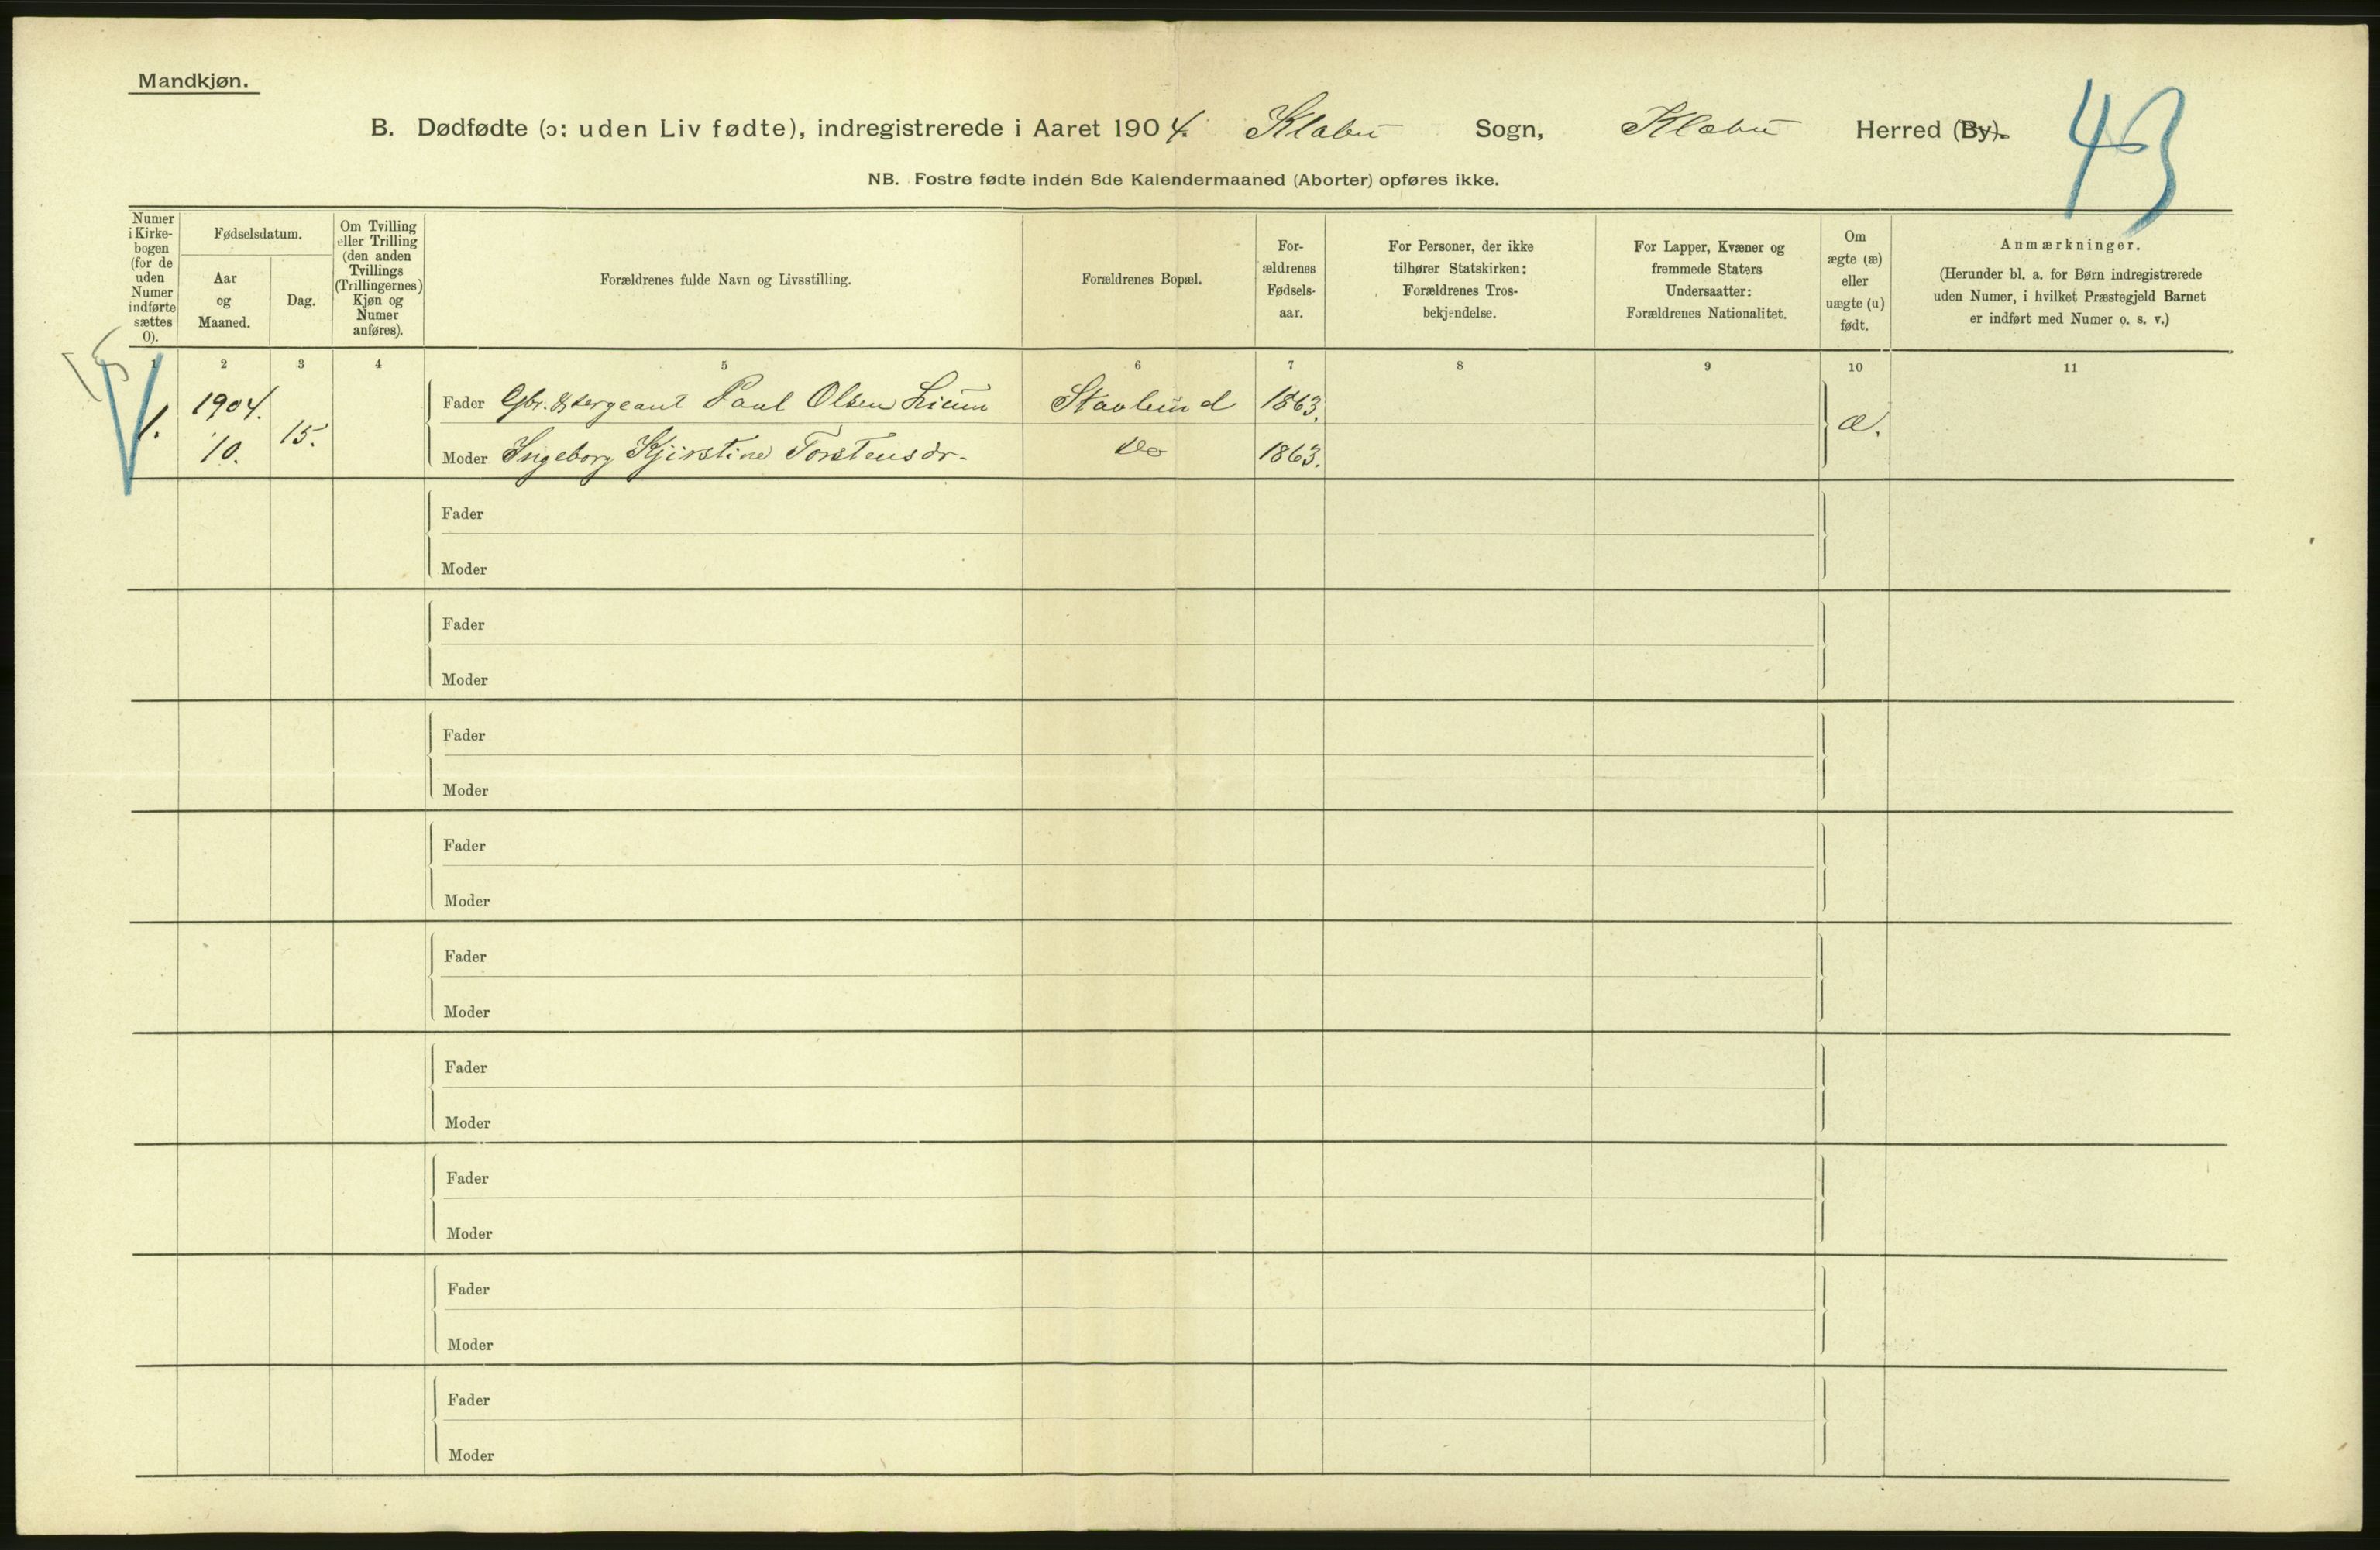 Mandkjøn.
B. Dødfødte (ɔ: uden Liv fødte), indregistrerede i Aaret 1904. Klæbu Sogn, Klæbu Herred (By).
43
NB. Fostre fødte inden 8de Kalendermaaned (Aborter) opføres ikke.
Numer i Kirke-bogen (for de uden Numer indførte sættes 0).
Fødselsdatum.
Aar og Maaned.
Dag.
Om Tvilling eller Trilling (den anden Tvillings (Trillingernes) Kjøn og Numer anføres).
Forældrenes fulde Navn og Livsstilling.
Forældrenes Bopæl.
For-ældrenes Fødsels-aar.
For Personer, der ikke tilhører Statskirken: Forældrenes Tros-bekjendelse.
For Lapper, Kvæner og fremmede Staters Undersaatter: Forældrenes Nationalitet.
Om ægte (æ) eller uægte (u) født.
Anmærkninger.
(Herunder bl. a. for Børn indregistrerede uden Numer, i hvilket Præstegjeld Barnet er indført med Numer o. s. v.)
1 2 3 4 5 6 7 8 9 10 11
1. 1904. 10. 15.
Fader Gbr. & sergeant Paul Olsen Lium Stavlund 1863.
æ.
Moder Ingeborg Kjirstine Torstensdr. Do 1863.
Fader
Moder
Fader
Moder
Fader
Moder
Fader
Moder
Fader
Moder
Fader
Moder
Fader
Moder
Fader
Moder
Fader
Moder